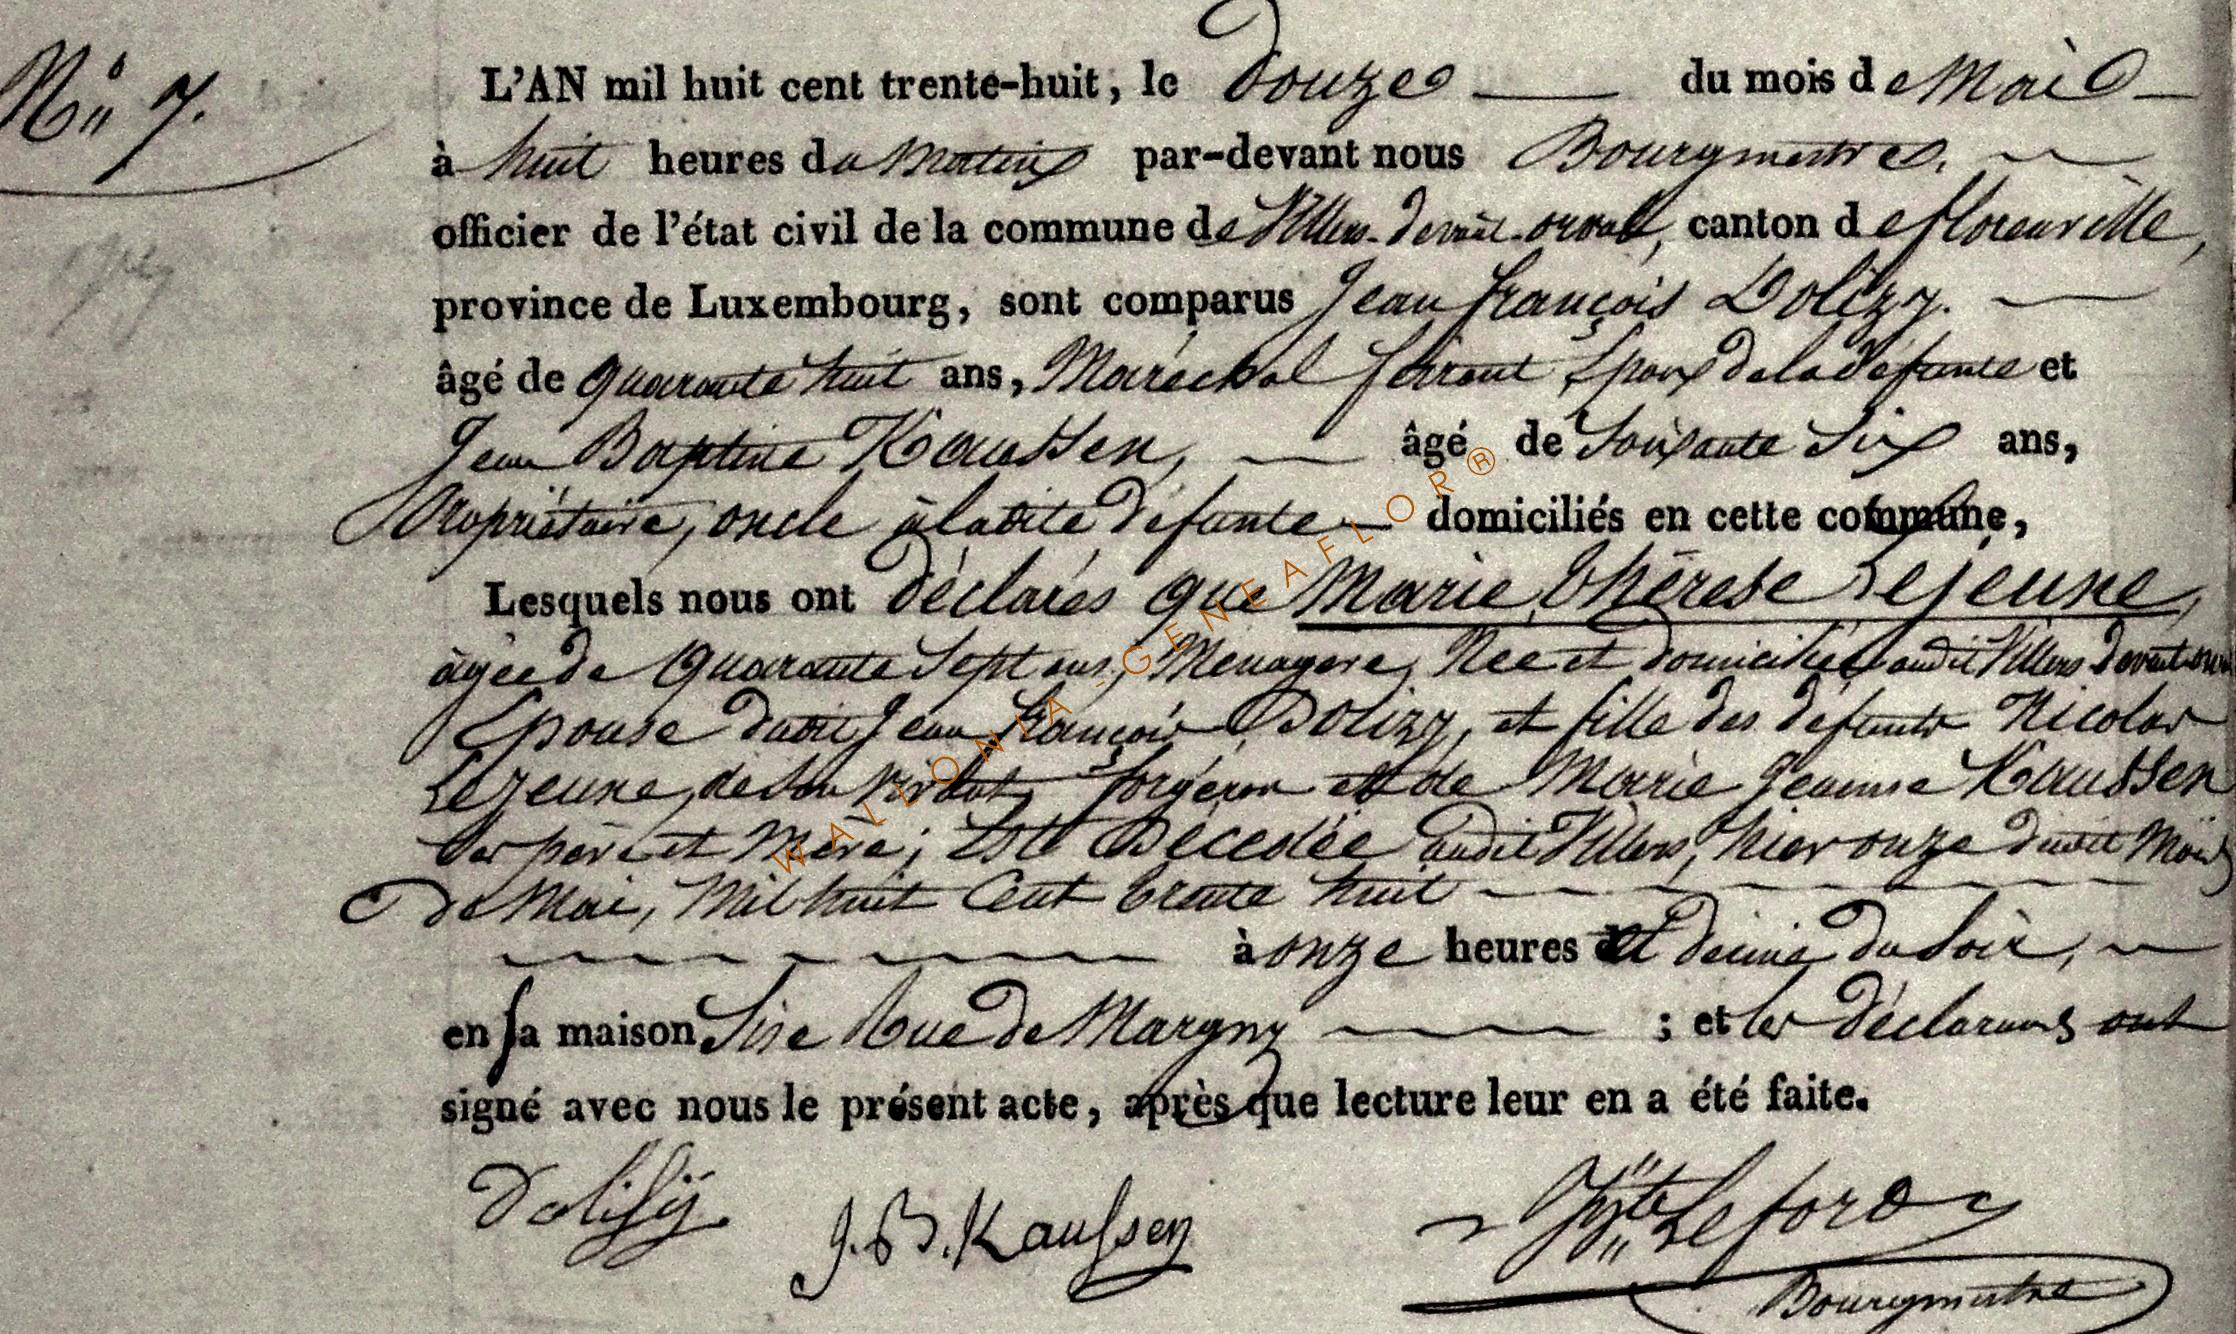 N.º 7.
L'AN mil huit cent trente-huit, le douze du mois de Mai
à huit heures du Matin par-devant nous Bourgmestre.
officier de l'état civil de la commune de Villers-devant-orval, canton de florenville,
province de Luxembourg, sont comparus Jean françois Dolizy.
âgé de quarante huit ans, Maréchal ferrant Epoux de la défunte et
Jean Baptiste Kaussen, âgé de Soixante Six ans,
Propriétaire, oncle à ladite défunte domiciliés en cette commune,
Lesquels nous ont déclarés que Marie Thérese Lejeune,
âgée de Quarante Sept ans, Menagere, Née et domiciliée audit Villers devant orval
Epouse dudit Jean François Dolizy, et fille des défunts Nicolas
Lejeune, de Son vivant, forgeron et de Marie Jeanne Kaussen
Ses père et Mère; Est Décedée audit Villers, hier onze dudit Mois
de Mai, Mil huit Cent trente huit
à onze heures et demie du Soir,
en sa maison Sise Rue de Margny ; et les déclarans ont
signé avec nous le présent acte, après que lecture leur en a été faite.
Dolisÿ J. B. Kaussen Hyte Leford
Bourgmestre
WALLONIA - GENEAFLOR®